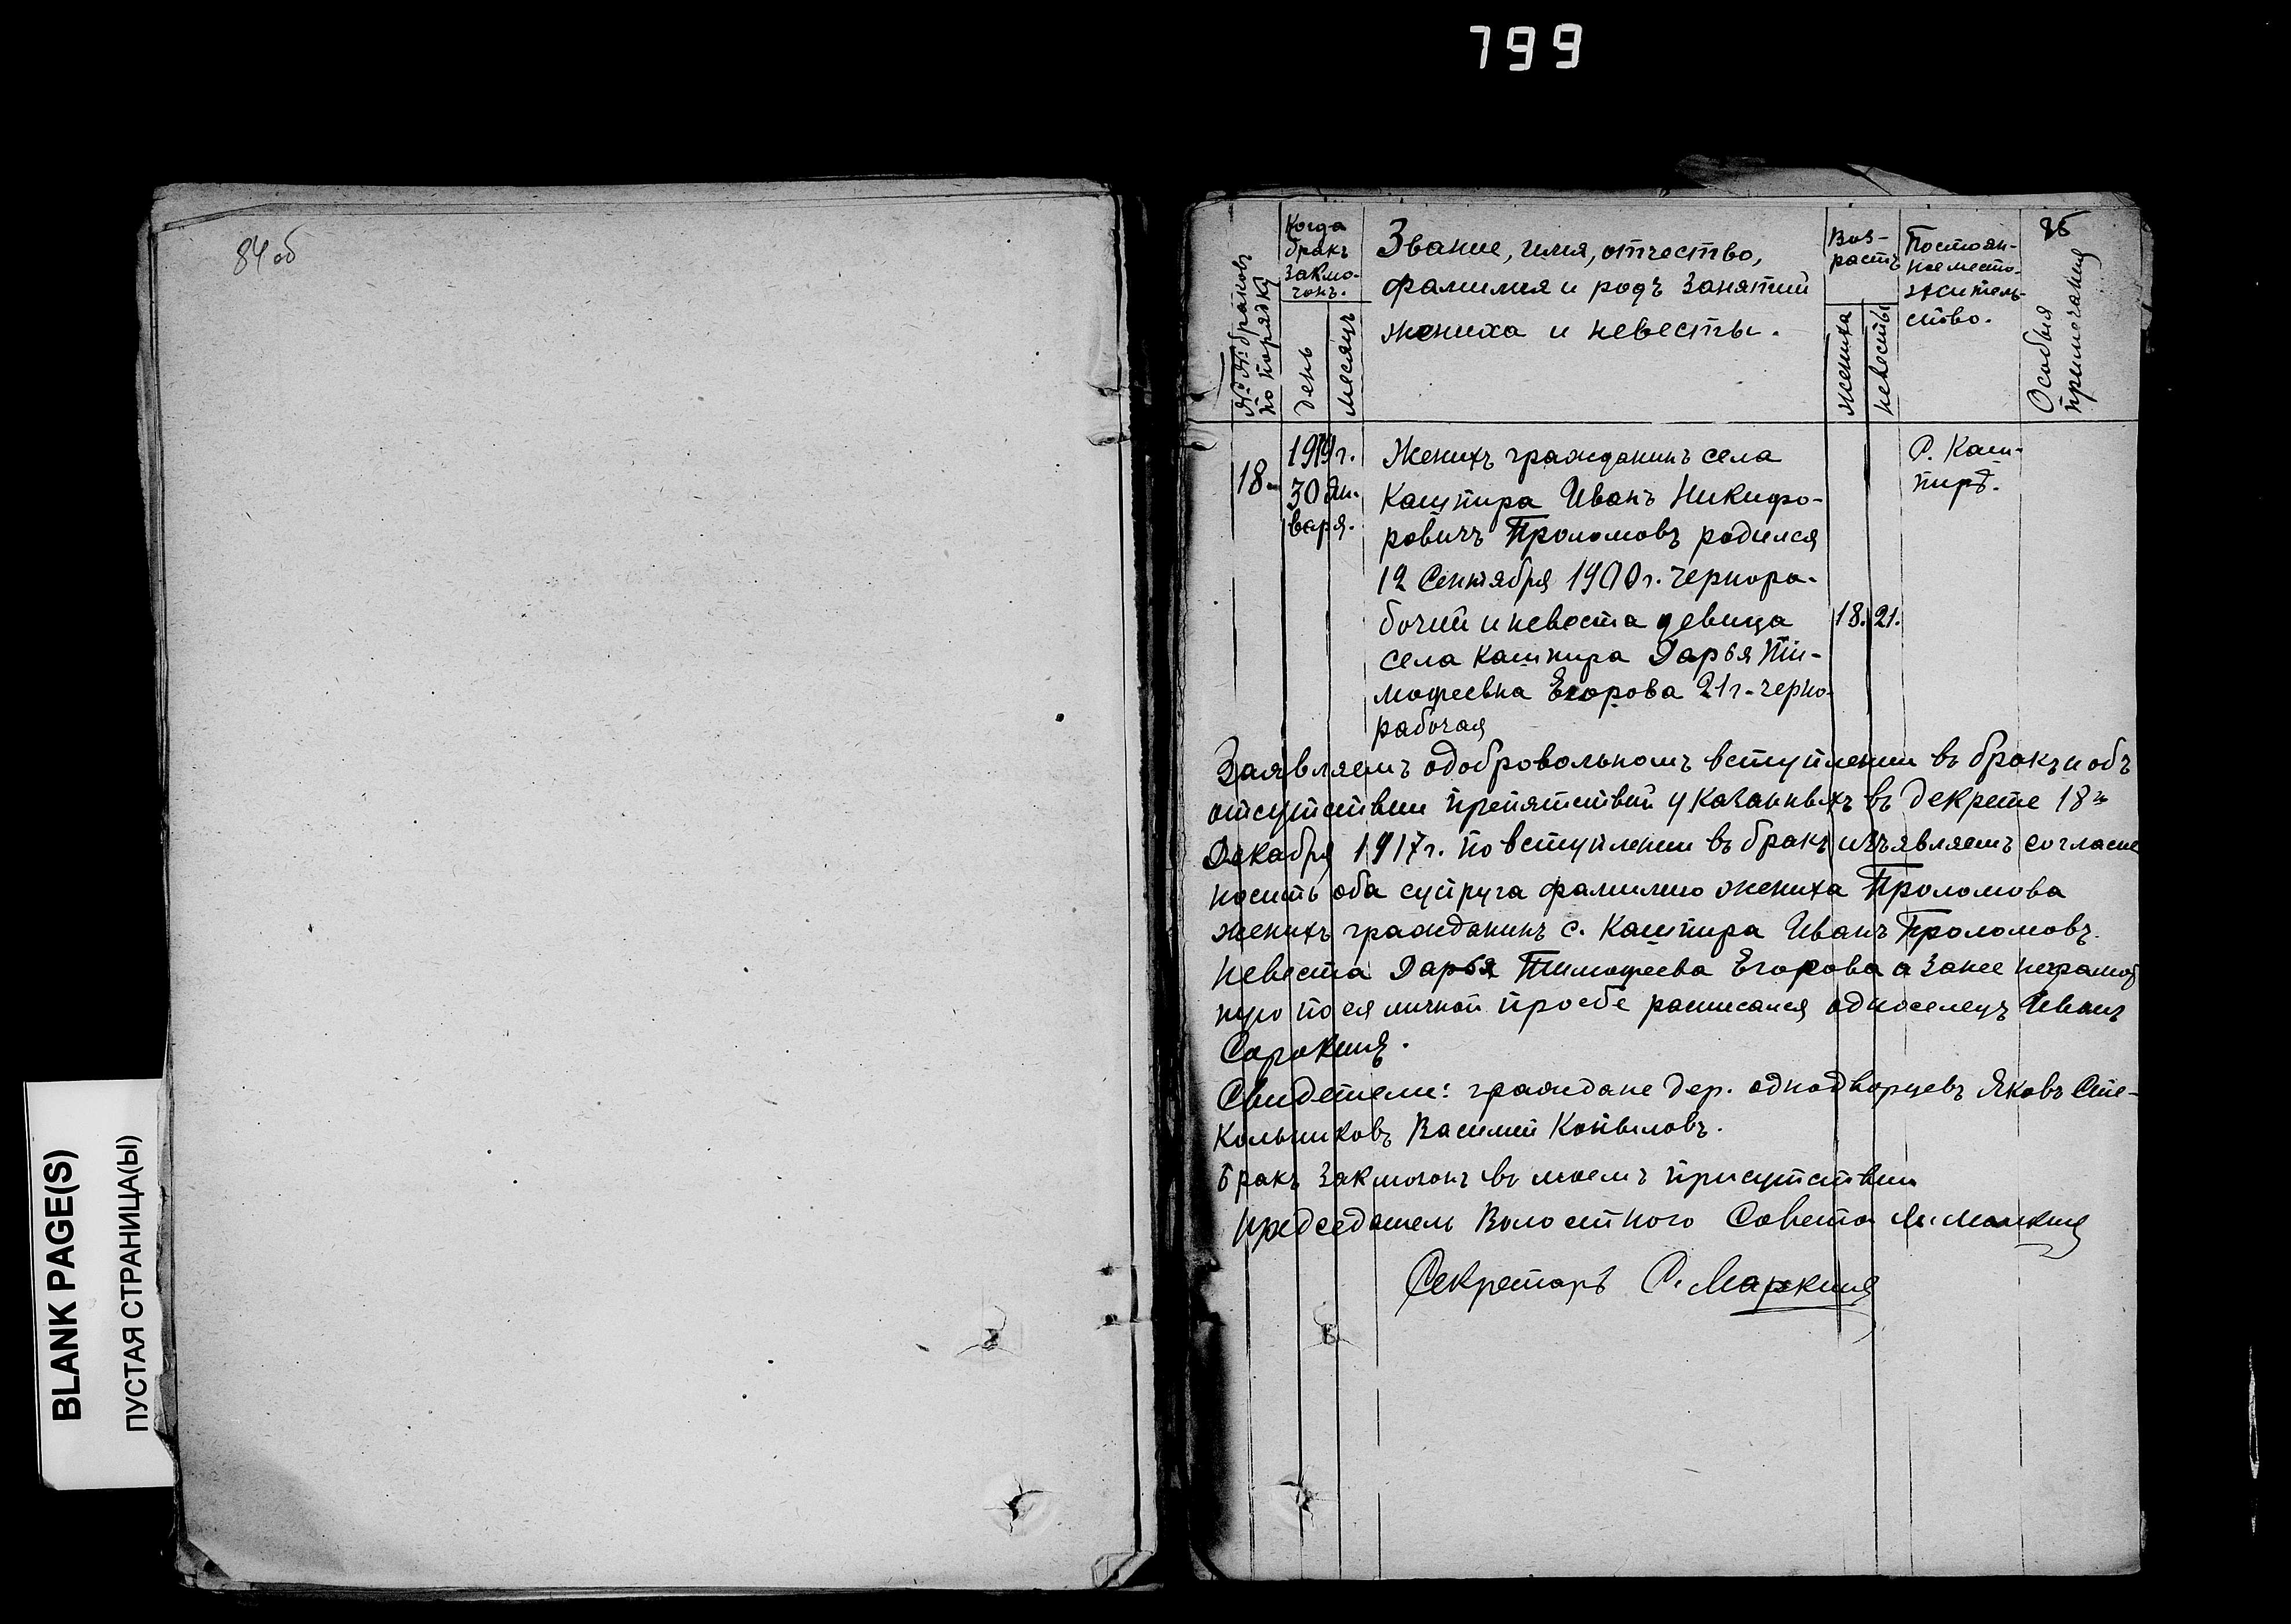 799
84 об
85
№№ браковъ
по порядку
Когда
бракъ
заклю-
чонъ.
день
месяцъ
Звание, имя, отчество,
фамилия и родъ занятий
жениха и невесты.
Воз-
растъ
жениха
невесты
Постоян-
ное место-
житель-
ство.
Особыя
примечания
18
1919 г.
30 Ян-
варя.
Женихъ гражданинъ села
Кашпира Иванъ Никифо-
ровичъ Проломовъ родился
12 Сентября 1900 г. черно ра-
бочий и невеста девица
села Кашпира Дарья Ти-
мофеевна Егорова 21 г. черно-
рабочая
18. 21.
С. Каш-
пиръ.
Заявляемъ о добровольномъ вступлении въ бракъ и объ
отсутствии препятствий указанныхъ въ декрете 18го
Декабря 1917 г. по вступлении въ бракъ изъявляемъ согласие
носить оба супруга фамилию жениха Проломова
женихъ гражданинъ с. Кашпира Иванъ Проломовъ.
Невеста Дарья Тимофеева Егорова а за нее неграмот
ную по ея личной просбе расписался односелецъ Иванъ
Сорокинъ.
Свидетели: граждане дер. однодворцевъ Яковъ Сте-
кольниковъ Василий Копыловъ.
Бракъ заключонъ въ моемъ присутствии
председатель Волостного Совета
Секретарь С. Маркинъ
BLANK PAGE(S)
ПУСТАЯ СТРАНИЦА(Ы)